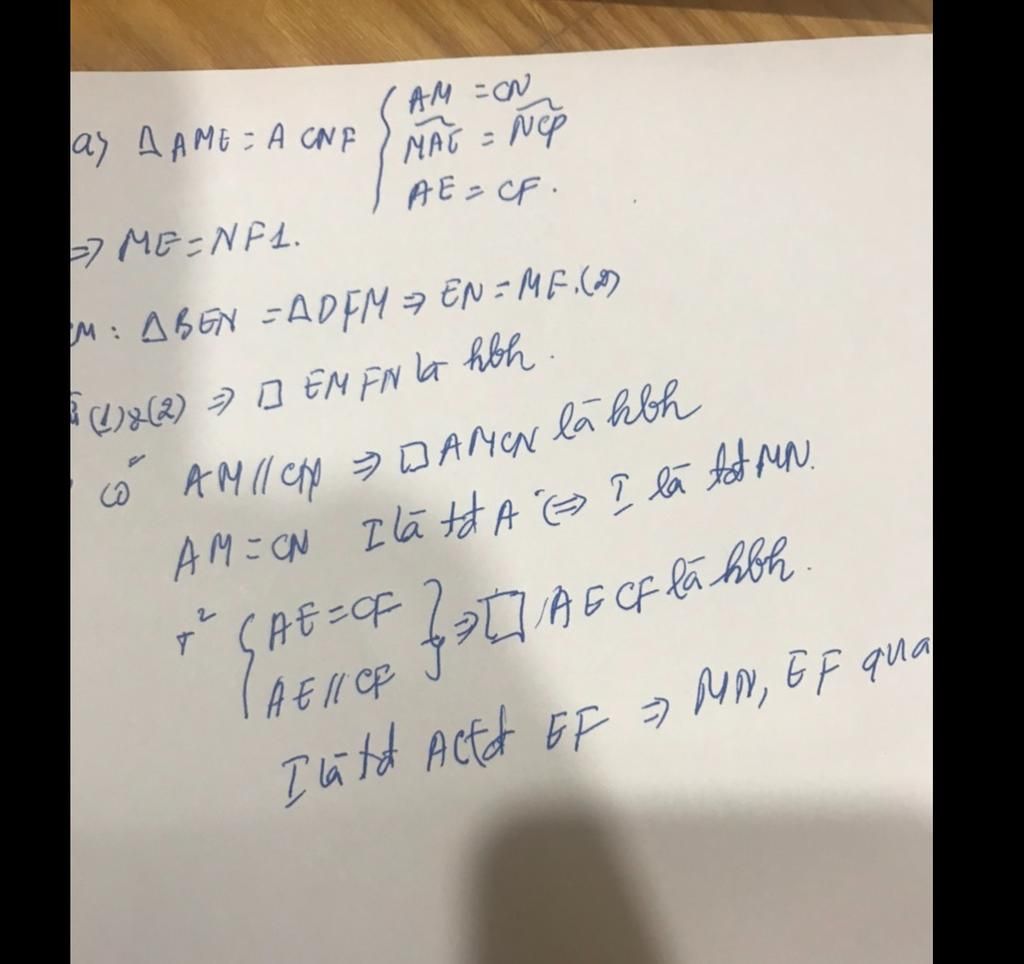 a) Δ AME = A CNF { AM = CN
MAE = NCP
AE = CF.
=> ME = NF1.
M: ΔBEN = ΔDFM => EN = MF.(2)
(1)&(2) => □ EMFN là hbh.
có AM // CN => □ AMCN là hbh
AM = CN I là tđ A <=> I là tđ MN.
T² { AE = CF } => □ AECF là hbh.
AE // CF
I là tđ AC tđ EF => MN, EF qua